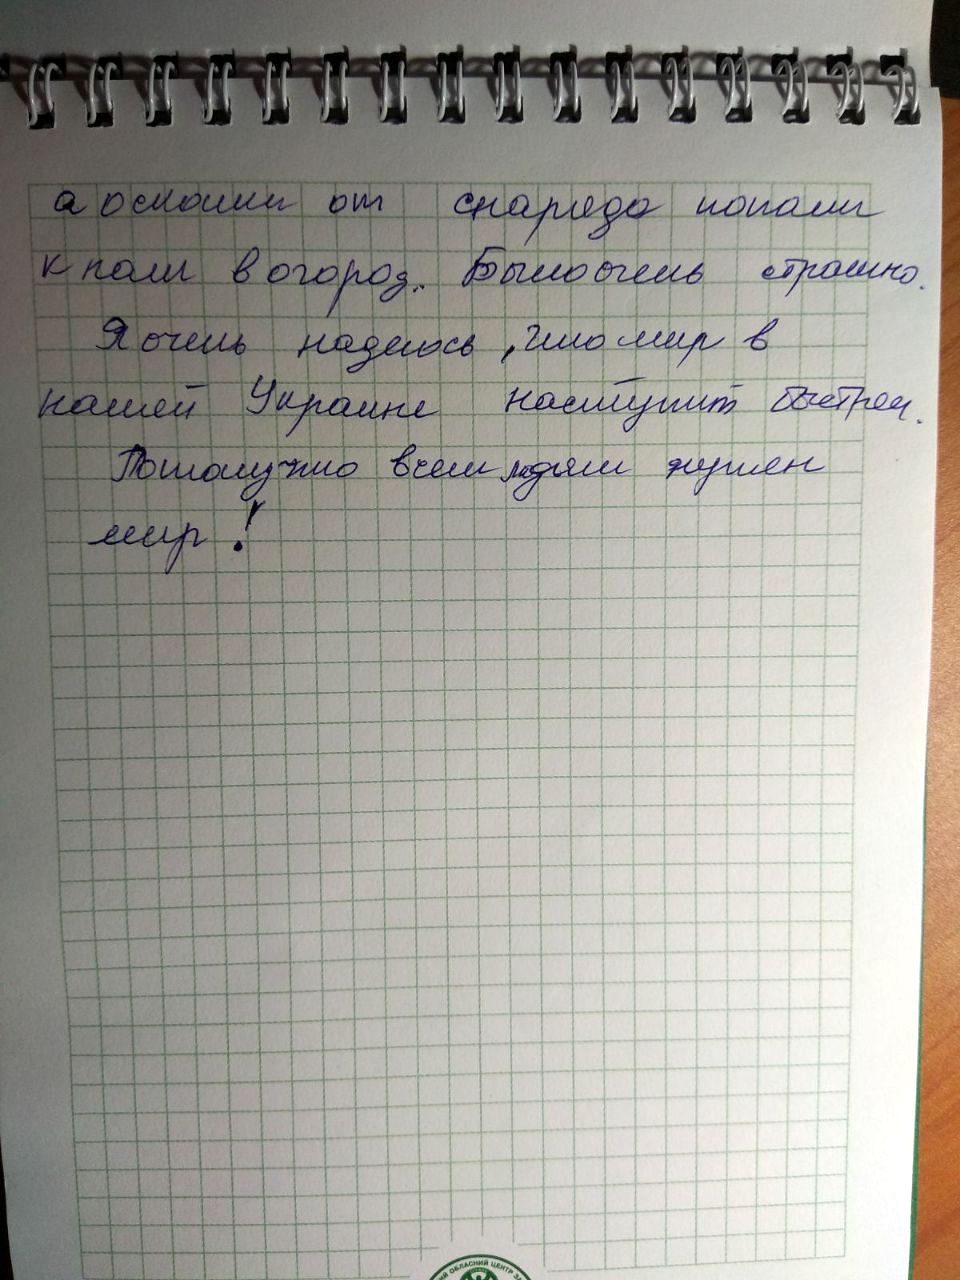 а осколки от снаряда попали
к нам в огород. Было очень страшно.
Я очень надеюсь, что мир в
нашей Украине наступит быстрей.
Потому что всем людям нужен
мир!
ОБЛАСНИЙ ЦЕНТР